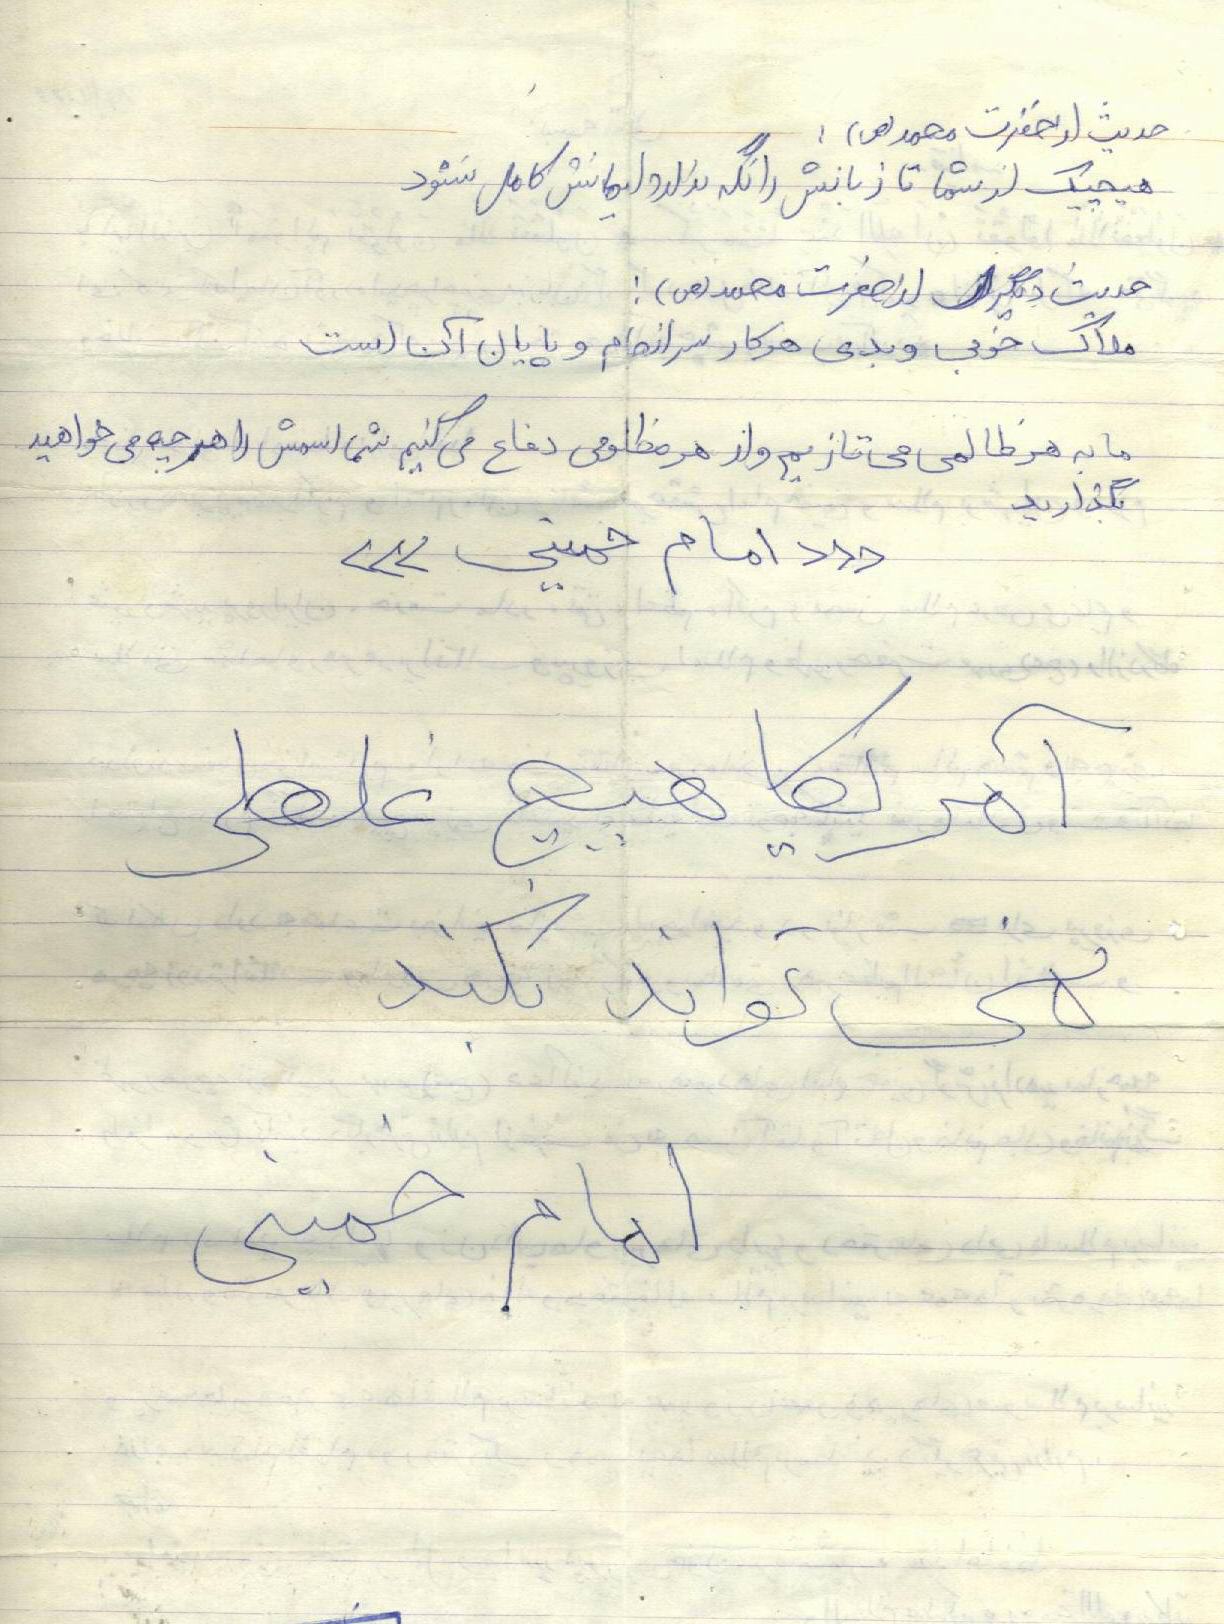 حدیث از حضرت محمد (ص) :
هیچیک از شما تا زبانش را نگه ندارد ایمانش کامل نشود
حدیث دیگر از حضرت محمد (ص) :
ملاک خوبی و بدی هر کار سرانجام و پایان آن است
ما به هر ظالمی می تازیم و از هر مظلومی دفاع می کنیم شما اسمش را هر چه می خواهید
بگذارید
امام خمینی
آمریکا هیچ غلطی
نمی تواند بکند
امام خمینی